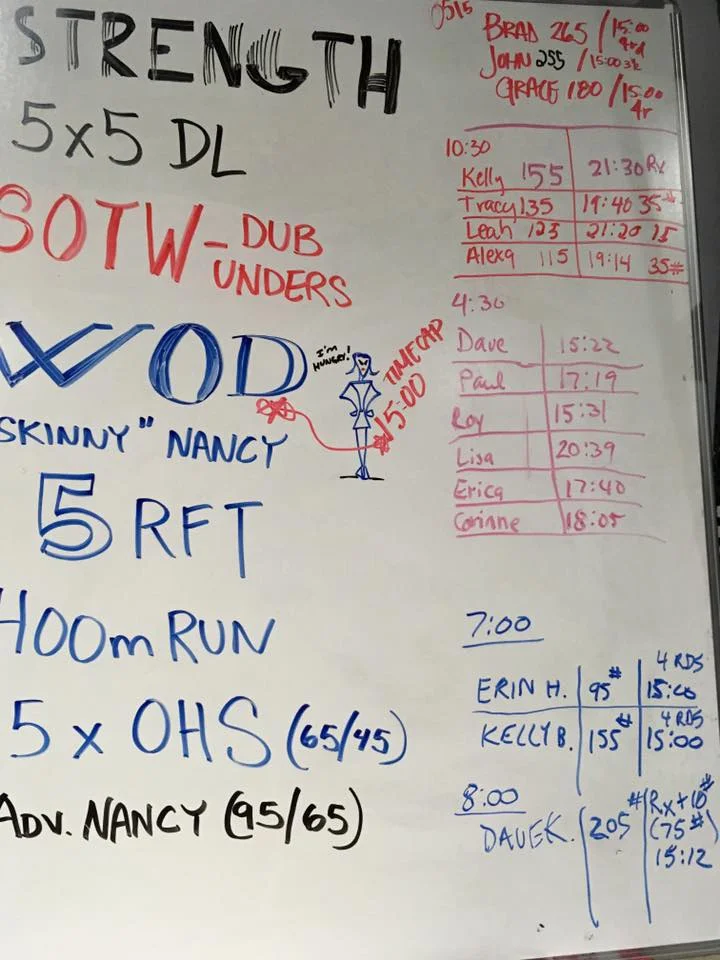 STRENGTH
5x5 DL
SOTW - DUB
UNDERS
WOD
I'M
HUNGRY!
TIME CAP
15:00
SKINNY" NANCY
5 RFT
400m RUN
5 x OHS (65/45)
ADV. NANCY (95/65)
0515
BRAD 265 / 15:00
4rd
JOHN 255 / 15:00
GRACE 180 / 15:00
4r
10:30
Kelly 155 21:30 Rx
Tracy 135 19:40 35#
Leah 123 21:20 15
Alexa 115 19:14 35#
4:30
Dave 15:22
Paul 17:19
Roy 15:31
Lisa 20:39
Erica 17:40
Corinne 18:05
7:00
4 RDS
ERIN H. 95# 15:00
4 RDS
KELLY B. 155# 15:00
8:00
DAVE K. 205# Rx+10#
(75#)
15:12